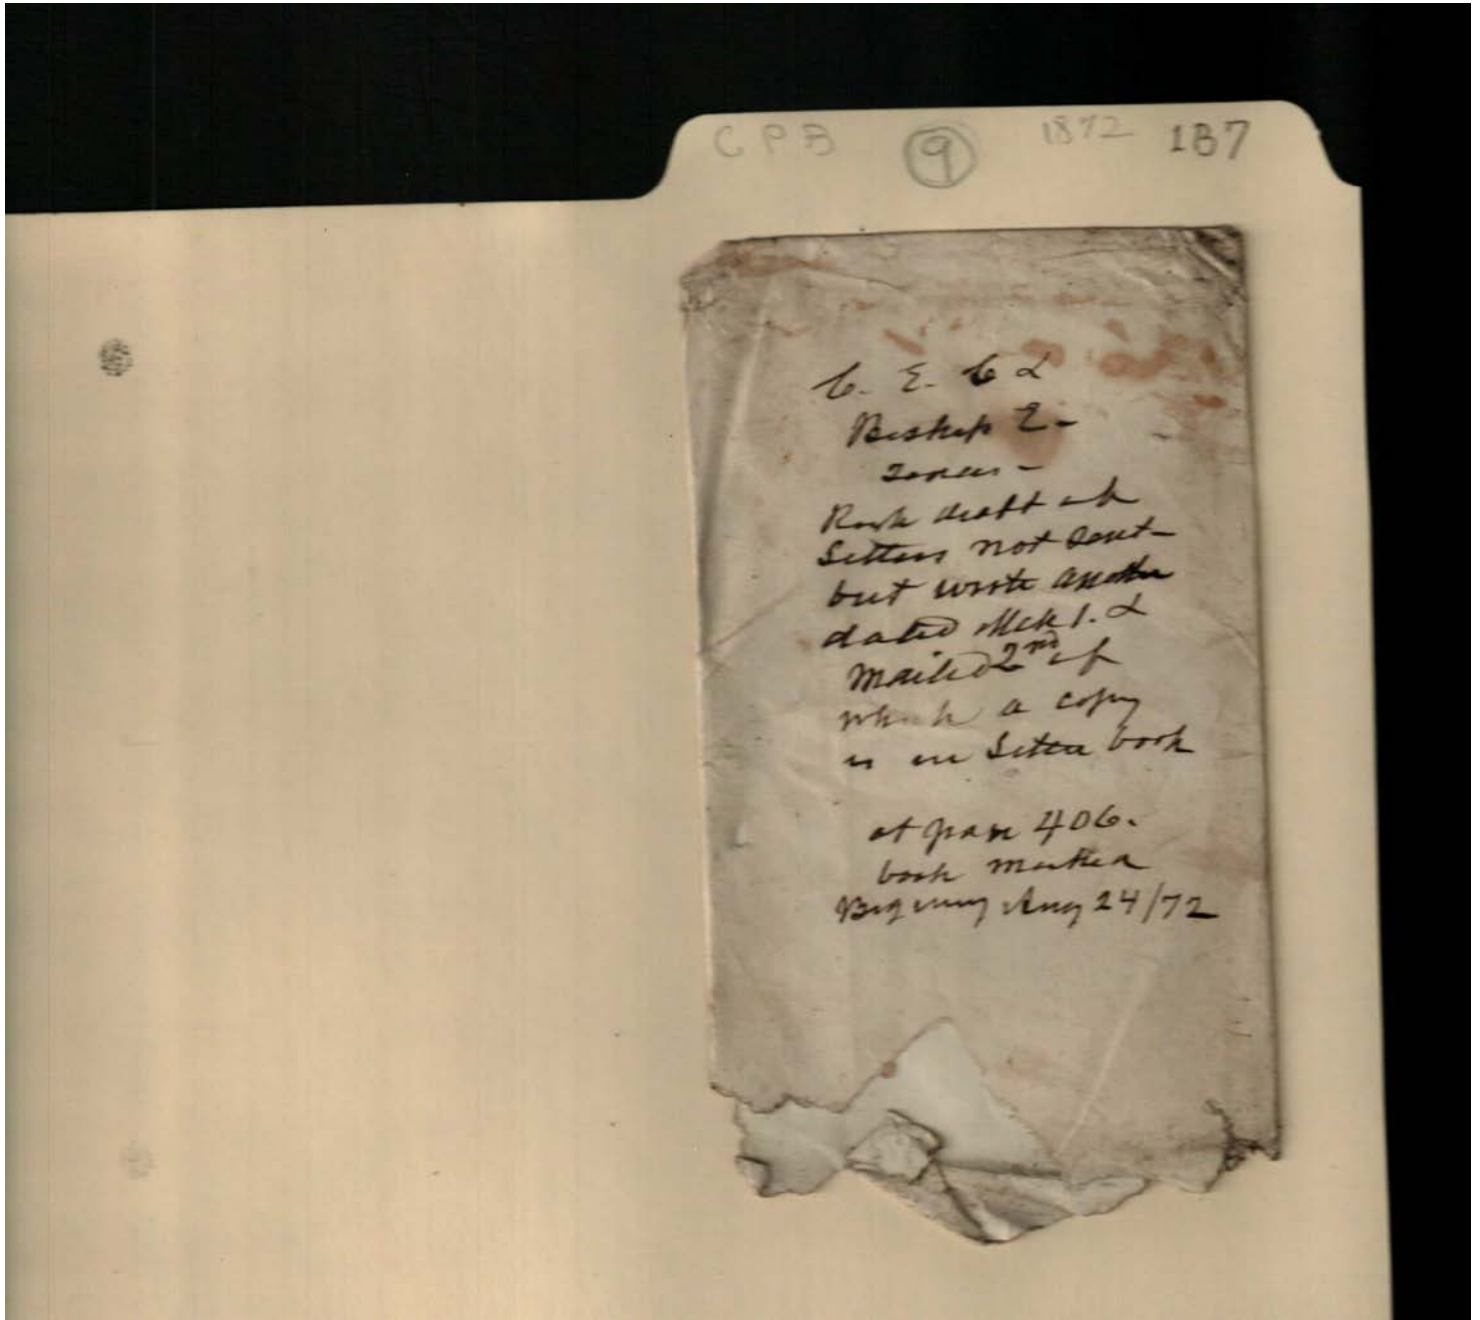 CPB 9 1872 187
C. E. C &
Bishop
draft of
Letters not sent-
but wrote another
dated Mch 1. &
Mailed 2nd of
which a copy
is in Letter book
at page 406.
book marked
Beginning Aug 24/72